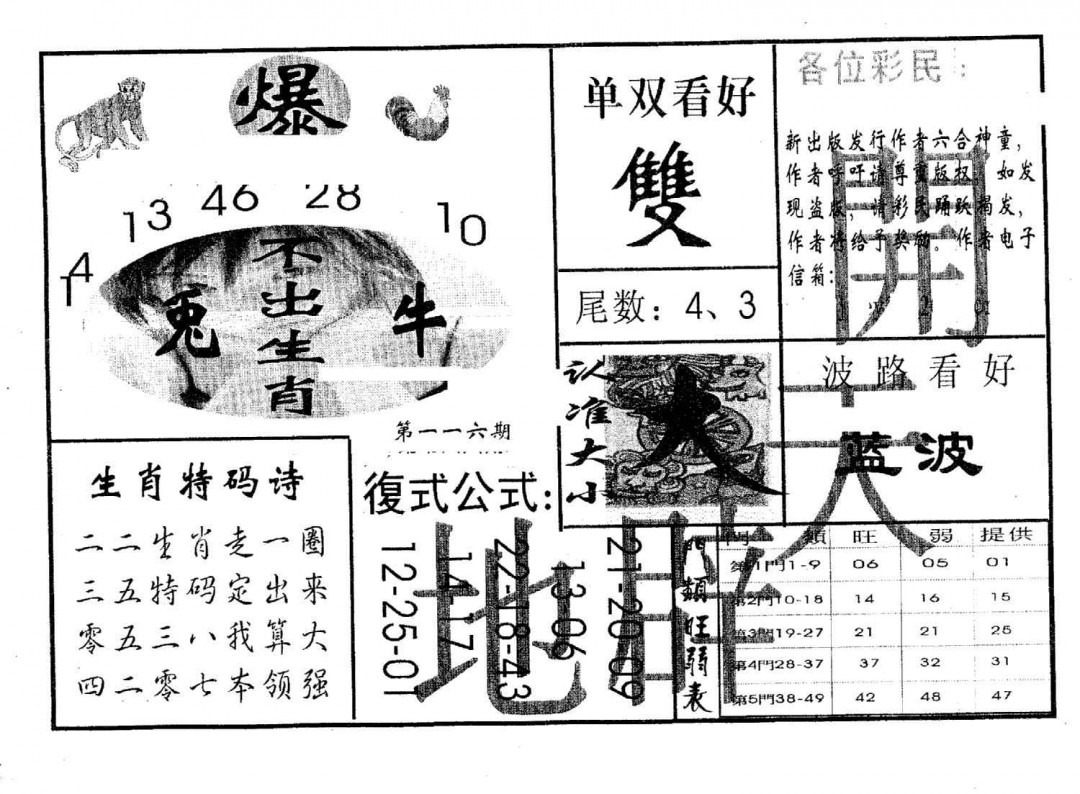 爆
14 13 46 28 10
不出生肖
兔 牛
第一一六期
单双看好
雙
尾数：4、3
各位彩民：
新出版发行作者六合神童，
作者呼吁请尊重版权，如发
现盗版，请彩民踊跃揭发，
作者将给予奖励。作者电子
信箱：
認准大小
大
波路看好
蓝波
開天
地
生肖特码诗
二二生肖走一圈
三五特码定出来
零五三八我算大
四二零七本领强
復式公式：
12-25-01
14-17
22-18-43
13-06
21-20-09
門類旺弱表
門類 旺 弱 提供
第1門1-9 06 05 01
第2門10-18 14 16 15
第3門19-27 21 21 25
第4門28-37 37 32 31
第5門38-49 42 48 47